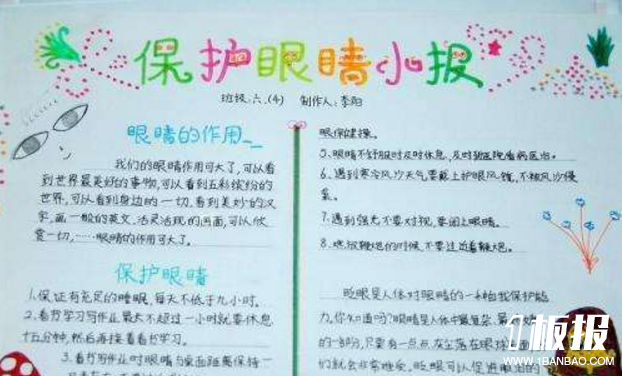 保护眼睛小报
班级:六.(4) 制作人:李阳
眼睛的作用
我们的眼睛作用可大了,可以看
到世界最美好的事物,可以看到五彩缤纷的
世界,可以看到身边的一切,看到美妙的汉
字,画一般的英文、活灵活现的画面,可以欣
赏一切,……眼睛的作用可大了。
保护眼睛
1.保证有充足的睡眠,每天不低于九小时。
2.看书学习写作业最大不超过一小时就要休息
十五分钟,然后再接着看书学习。
3.看书写作业时眼睛与桌面距离保持一
眼保健操。
5、眼睛不舒服时及时休息,及时到医院看病医治。
6、遇到寒冷风沙天气要戴上护眼风镜,不被风沙侵
袭。
7、遇到强光不要对视,要闭上眼睛。
8、燃放鞭炮的时候,不要过近看鞭炮。
眨眼是人体对眼睛的一种自我保护能
力,你知道吗?眼睛是人体中最复杂、最
的一部分,只要有一点点灰尘落在眼
们就会非常难受。眨眼可以促进眼泪的
1板报
WWW.1BANBAO.COM